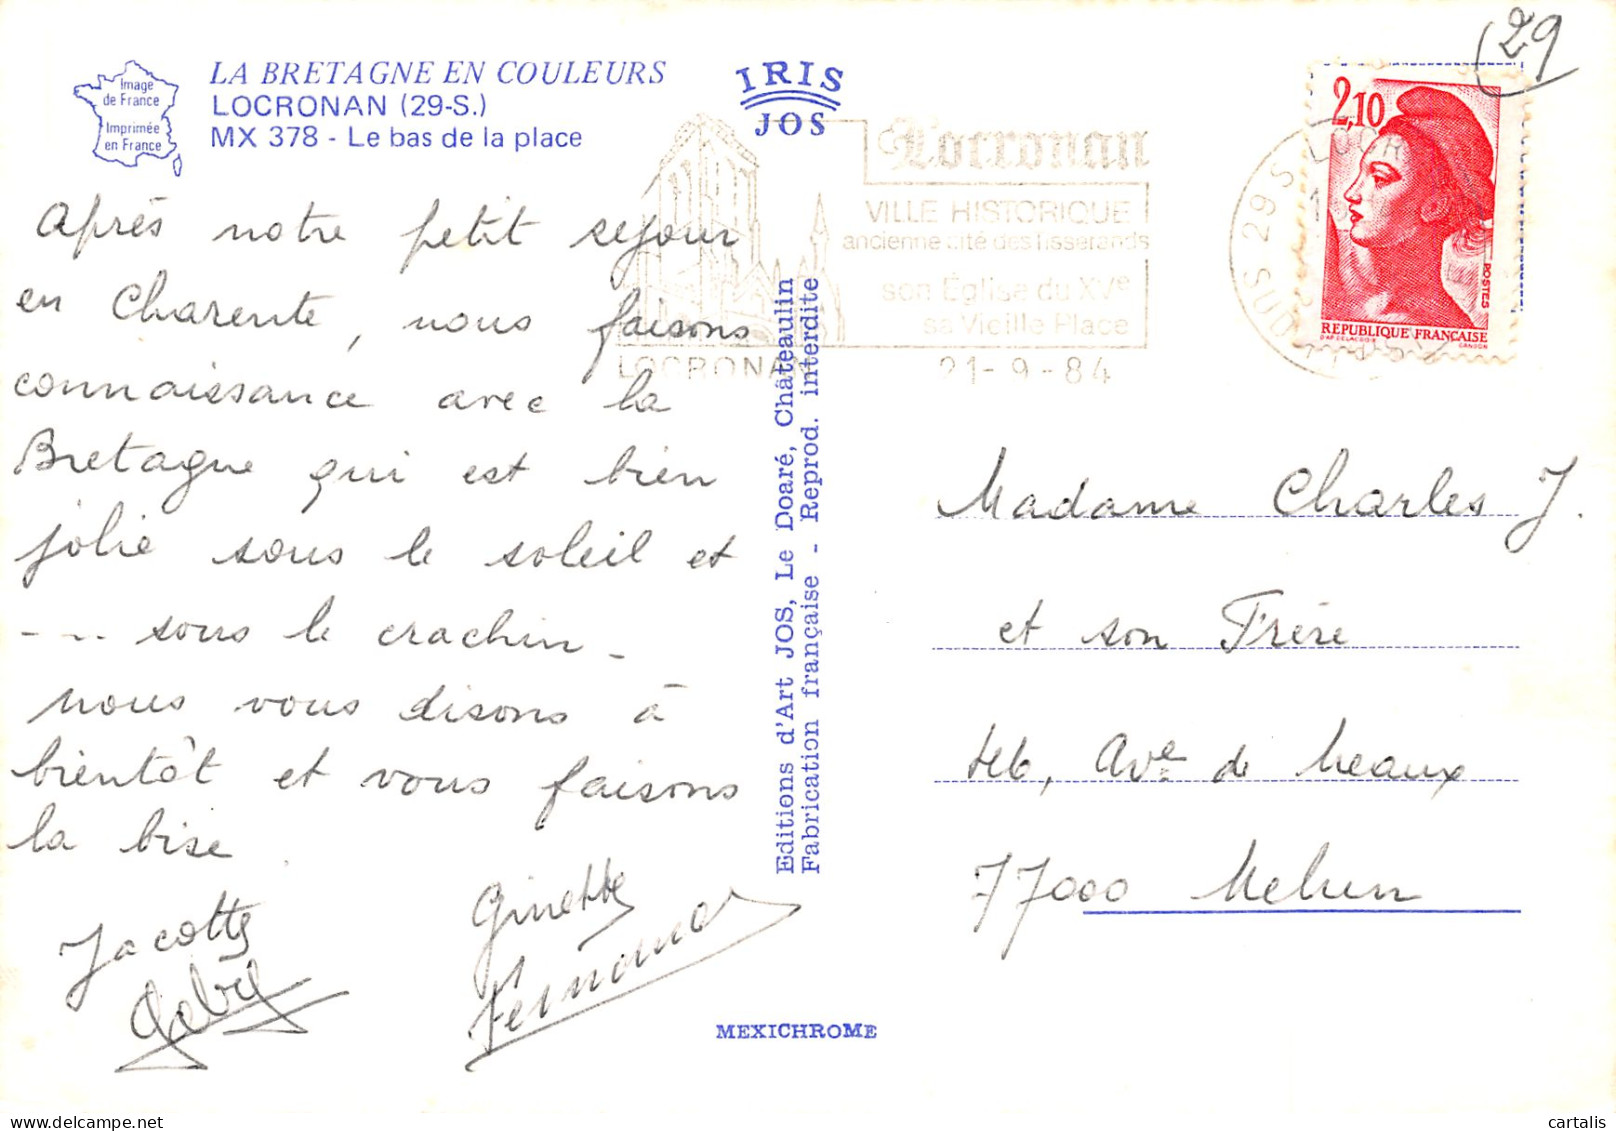 (29)
Image
de France
Imprimée
en France
LA BRETAGNE EN COULEURS
LOCRONAN (29-S.)
MX 378 - Le bas de la place
IRIS
JOS
Locronan
VILLE HISTORIQUE
ancienne cité des tisserands
son Église du XVe
sa Vieille Place
LOCRONAN 21-9-84
29 S LOCR
SUD
2,10
POSTES
REPUBLIQUE FRANÇAISE
D'AP. DELACROIX GANDON
Après notre petit sejour
en Charente, nous faisons
connaissance avec la
Bretagne qui est bien
jolie sous le soleil et
--- sous le crachin -
nous vous disons à
bientôt et vous faisons
la bise.
Jacotte Ginette
Gaby Fernand
Editions d'Art JOS, Le Doaré, Châteaulin
Fabrication française - Reprod. interdite
MEXICHROME
Madame Charles J.
et son Frère
Ave de Meaux
77000 Melun
cartalis